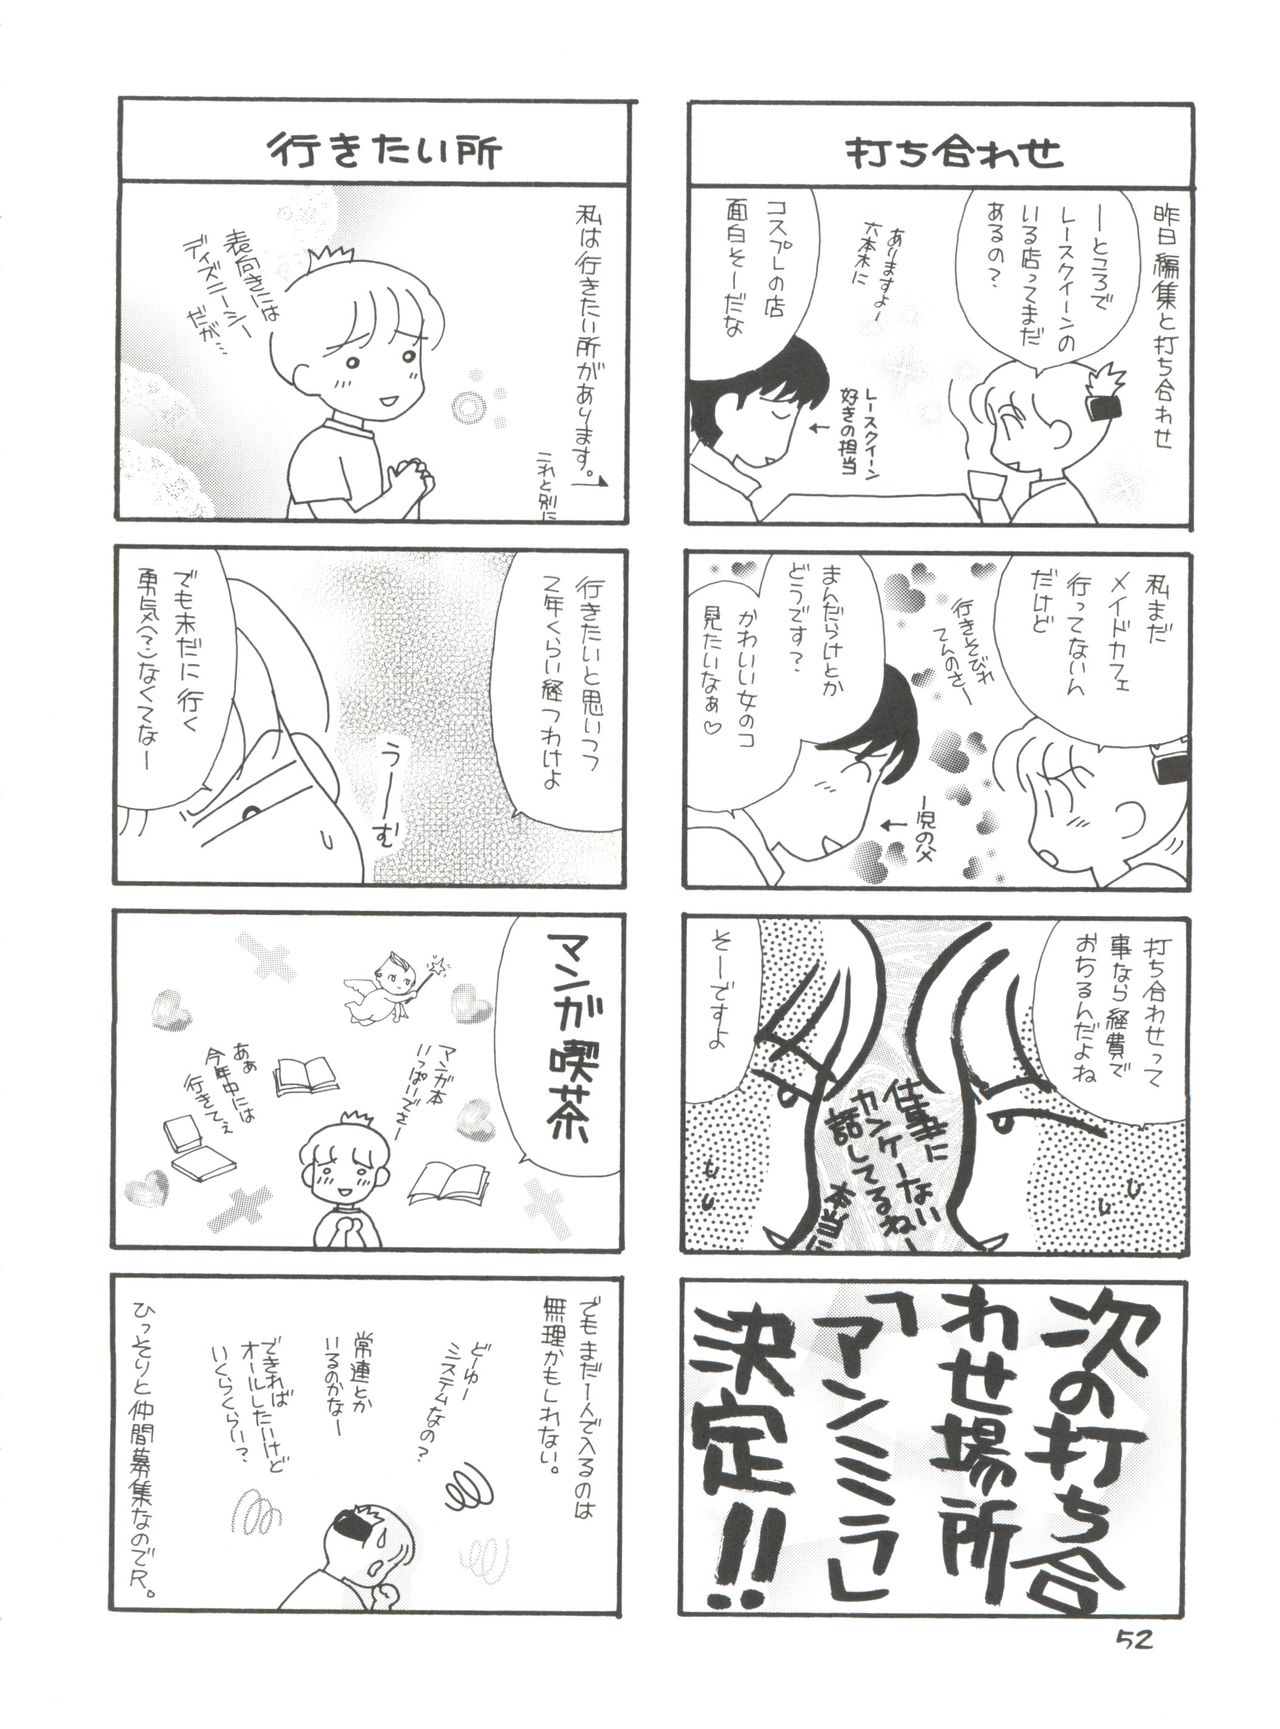 打ち合わせ
昨日編集と打ち合わせ
ーところで
レースクイーンの
いる店ってまだ
あるの？
ありますよー
六本木に
コスプレの店
面白そーだな
レースクイーン
好きの担当
私まだ
メイドカフェ
行ってないん
だけど
行きそびれ
てんのさー
まんだらけとか
どうです？
かわいい女のコ
見たいなぁ♡
一児の父
打ち合わせって
事なら経費で
おちるんだよね
そーですよ
仕事に
カンケーない
話してるねー
本当
次の打ち合
わせ場所
「アンミラ」
決定!!
行きたい所
私は行きたい所があります。
これと別に
表向きには
ディズニーシー
だが…
行きたいと思いつつ
2年くらい経つわけよ
うーむ
でも未だに行く
勇気(？)なくてなー
マンガ喫茶
マンガ本
いっぱいでさー
あぁ
今年中には
行きてぇ
でもまだ一人で入るのは
無理かもしれない。
どーゆー
システムなの？
常連とか
いるのかなー
できれば
オールしたいけど
いくらくらい？
ひっそりと仲間募集なのでR。
52